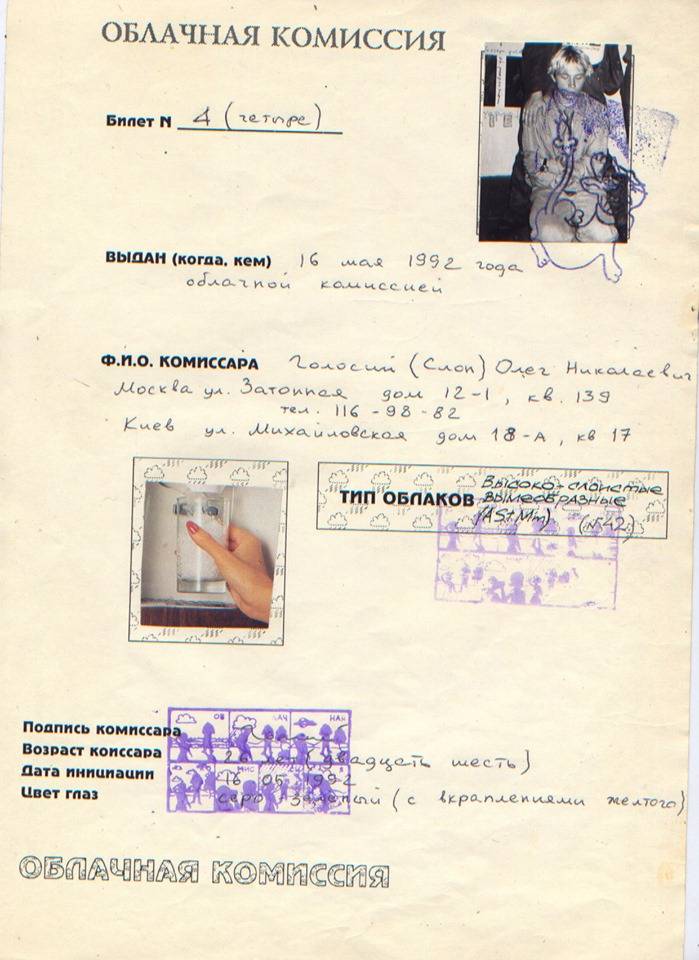 ОБЛАЧНАЯ КОМИССИЯ
Билет N 4 (четыре)
ВЫДАН (когда, кем) 16 мая 1992 года
облачной комиссией
Ф.И.О. КОМИССАРА Голосий (Слоп) Олег Николаевич
Москва ул. Затонная дом 12-1, кв. 139
тел. 116-98-82
Киев ул. Михайловская дом 18-А, кв 17
ТИП ОБЛАКОВ ВЫСОКО-СЛОИСТЫЕ
ВЫМЕОБРАЗНЫЕ
(AStMm) (№42)
ОБ ЛАЧ НАЯ
Подпись комиссара
Возраст коиссара 26 лет (двадцать шесть)
МИС
Дата инициации 16 05 1992
Цвет глаз серо-зеленый (с вкраплениями желтого)
ОБЛАЧНАЯ КОМИССИЯ